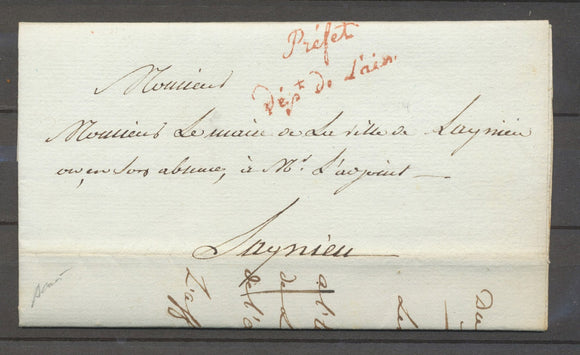 Préfet
Dépt de l'ain.
Monsieur
Monsieur Le maire de La ville de Lagnieu
ou, en son absence, à Mr. L'adjoint
Lagnieu
Du
Le
a l'
de L
de l'
L'aff